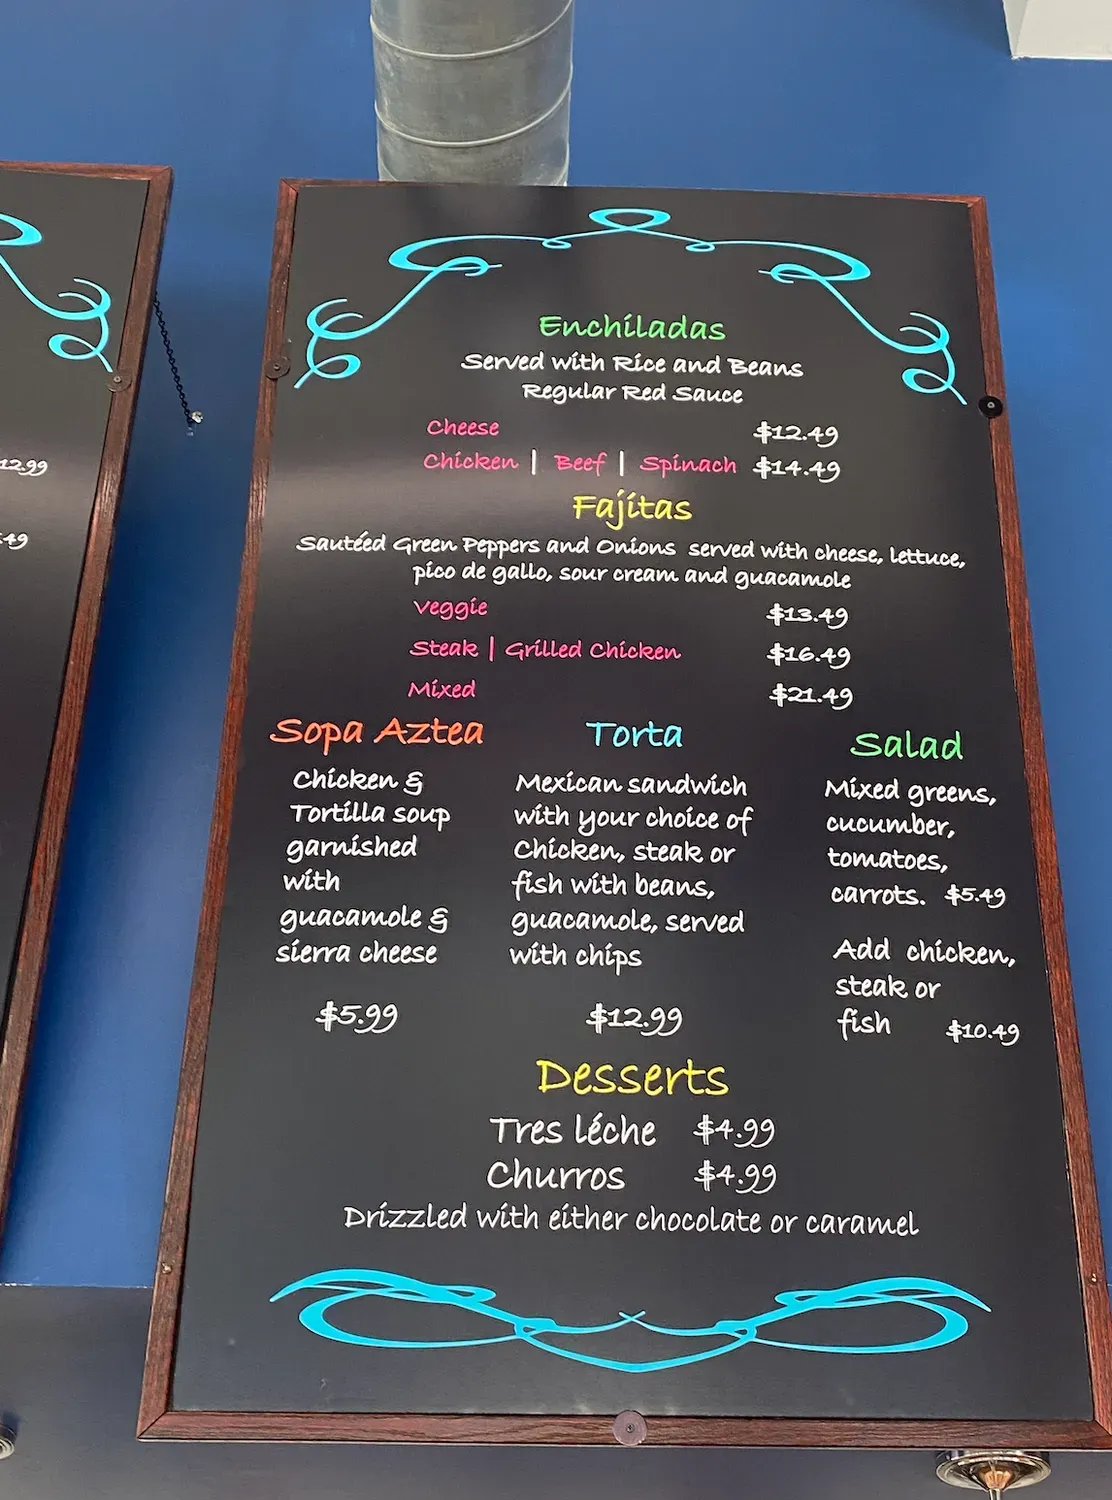 12.99
.49
Enchiladas
Served with Rice and Beans
Regular Red Sauce
Cheese $12.49
Chicken | Beef | Spinach $14.49
Fajitas
Sautéed Green Peppers and Onions served with cheese, lettuce,
pico de gallo, sour cream and guacamole
Veggie $13.49
Steak | Grilled Chicken $16.49
Mixed $21.49
Sopa Aztea
Chicken &
Tortilla soup
garnished
with
guacamole &
sierra cheese
$5.99
Torta
Mexican sandwich
with your choice of
Chicken, steak or
fish with beans,
guacamole, served
with chips
$12.99
Salad
Mixed greens,
cucumber,
tomatoes,
carrots. $5.49
Add chicken,
steak or
fish $10.49
Desserts
Tres léche $4.99
Churros $4.99
Drizzled with either chocolate or caramel